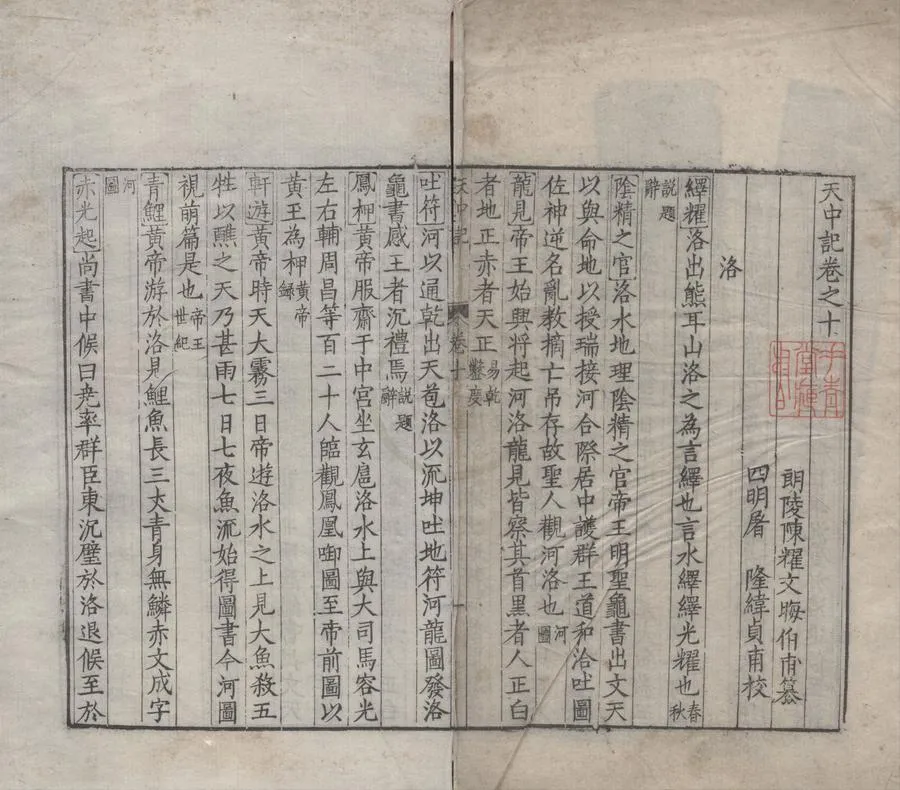 天中記卷之十
朗陵陳耀文晦伯甫纂
四明屠隆緯貞甫校
洛
繹耀洛出熊耳山洛之為言繹也言水繹繹光耀也春秋
說題辭
陰精之官洛水地理陰精之官帝王明聖龜書出文天
以與命地以授瑞接河合際居中護群王道和洽吐圖
佐神逆名亂教摘亡吊存故聖人觀河洛也河圖
龍見帝王始興將起河洛龍見皆察其首黑者人正白
者地正赤者天正易乾鑿度
天中記 卷十 一
吐符河以通乾出天苞洛以流坤吐地符河龍圖發洛
龜書感王者沉禮焉說題辭
鳳柙黃帝服齋于中宮坐玄扈洛水上與大司馬容光
左右輔周昌等百二十人臨觀鳳凰啣圖至帝前圖以
黃玉為柙黃帝錄
軒遊黃帝時天大霧三日帝遊洛水之上見大魚殺五
牲以醮之天乃甚雨七日七夜魚流始得圖書今河圖
視萌篇是也帝王世紀
青鯉黃帝游於洛見鯉魚長三丈青身無鱗赤文成字
河圖
赤光起尚書中候曰堯率群臣東沉璧於洛退候至於